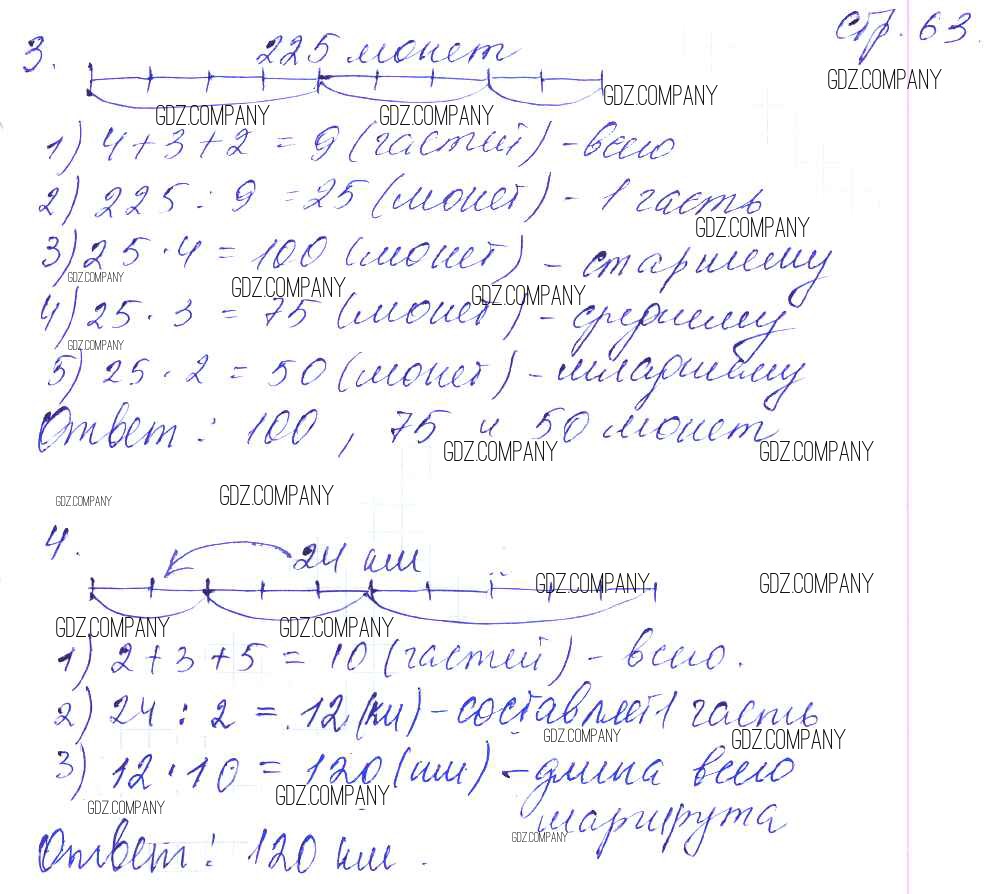 стр. 63.
3. 225 монет
GDZ.COMPANY
GDZ.COMPANY
GDZ.COMPANY GDZ.COMPANY
1) 4+3+2 = 9 (частей) - всего
2) 225 : 9 = 25 (монет) - 1 часть
GDZ.COMPANY
3) 25 · 4 = 100 (монет) - старшему
GDZ.COMPANY GDZ.COMPANY GDZ.COMPANY
4) 25 · 3 = 75 (монет) - среднему
GDZ.COMPANY
5) 25 · 2 = 50 (монет) - младшему
Ответ : 100 , 75 и 50 монет
GDZ.COMPANY GDZ.COMPANY
GDZ.COMPANY GDZ.COMPANY
4. 24 км
GDZ.COMPANY GDZ.COMPANY
GDZ.COMPANY GDZ.COMPANY
1) 2+3+5 = 10 (частей) - всего.
2) 24 : 2 = 12 (км) - составляет 1 часть
GDZ.COMPANY GDZ.COMPANY
3) 12 · 10 = 120 (км) - длина всего
GDZ.COMPANY GDZ.COMPANY
маршрута
GDZ.COMPANY
Ответ : 120 км .